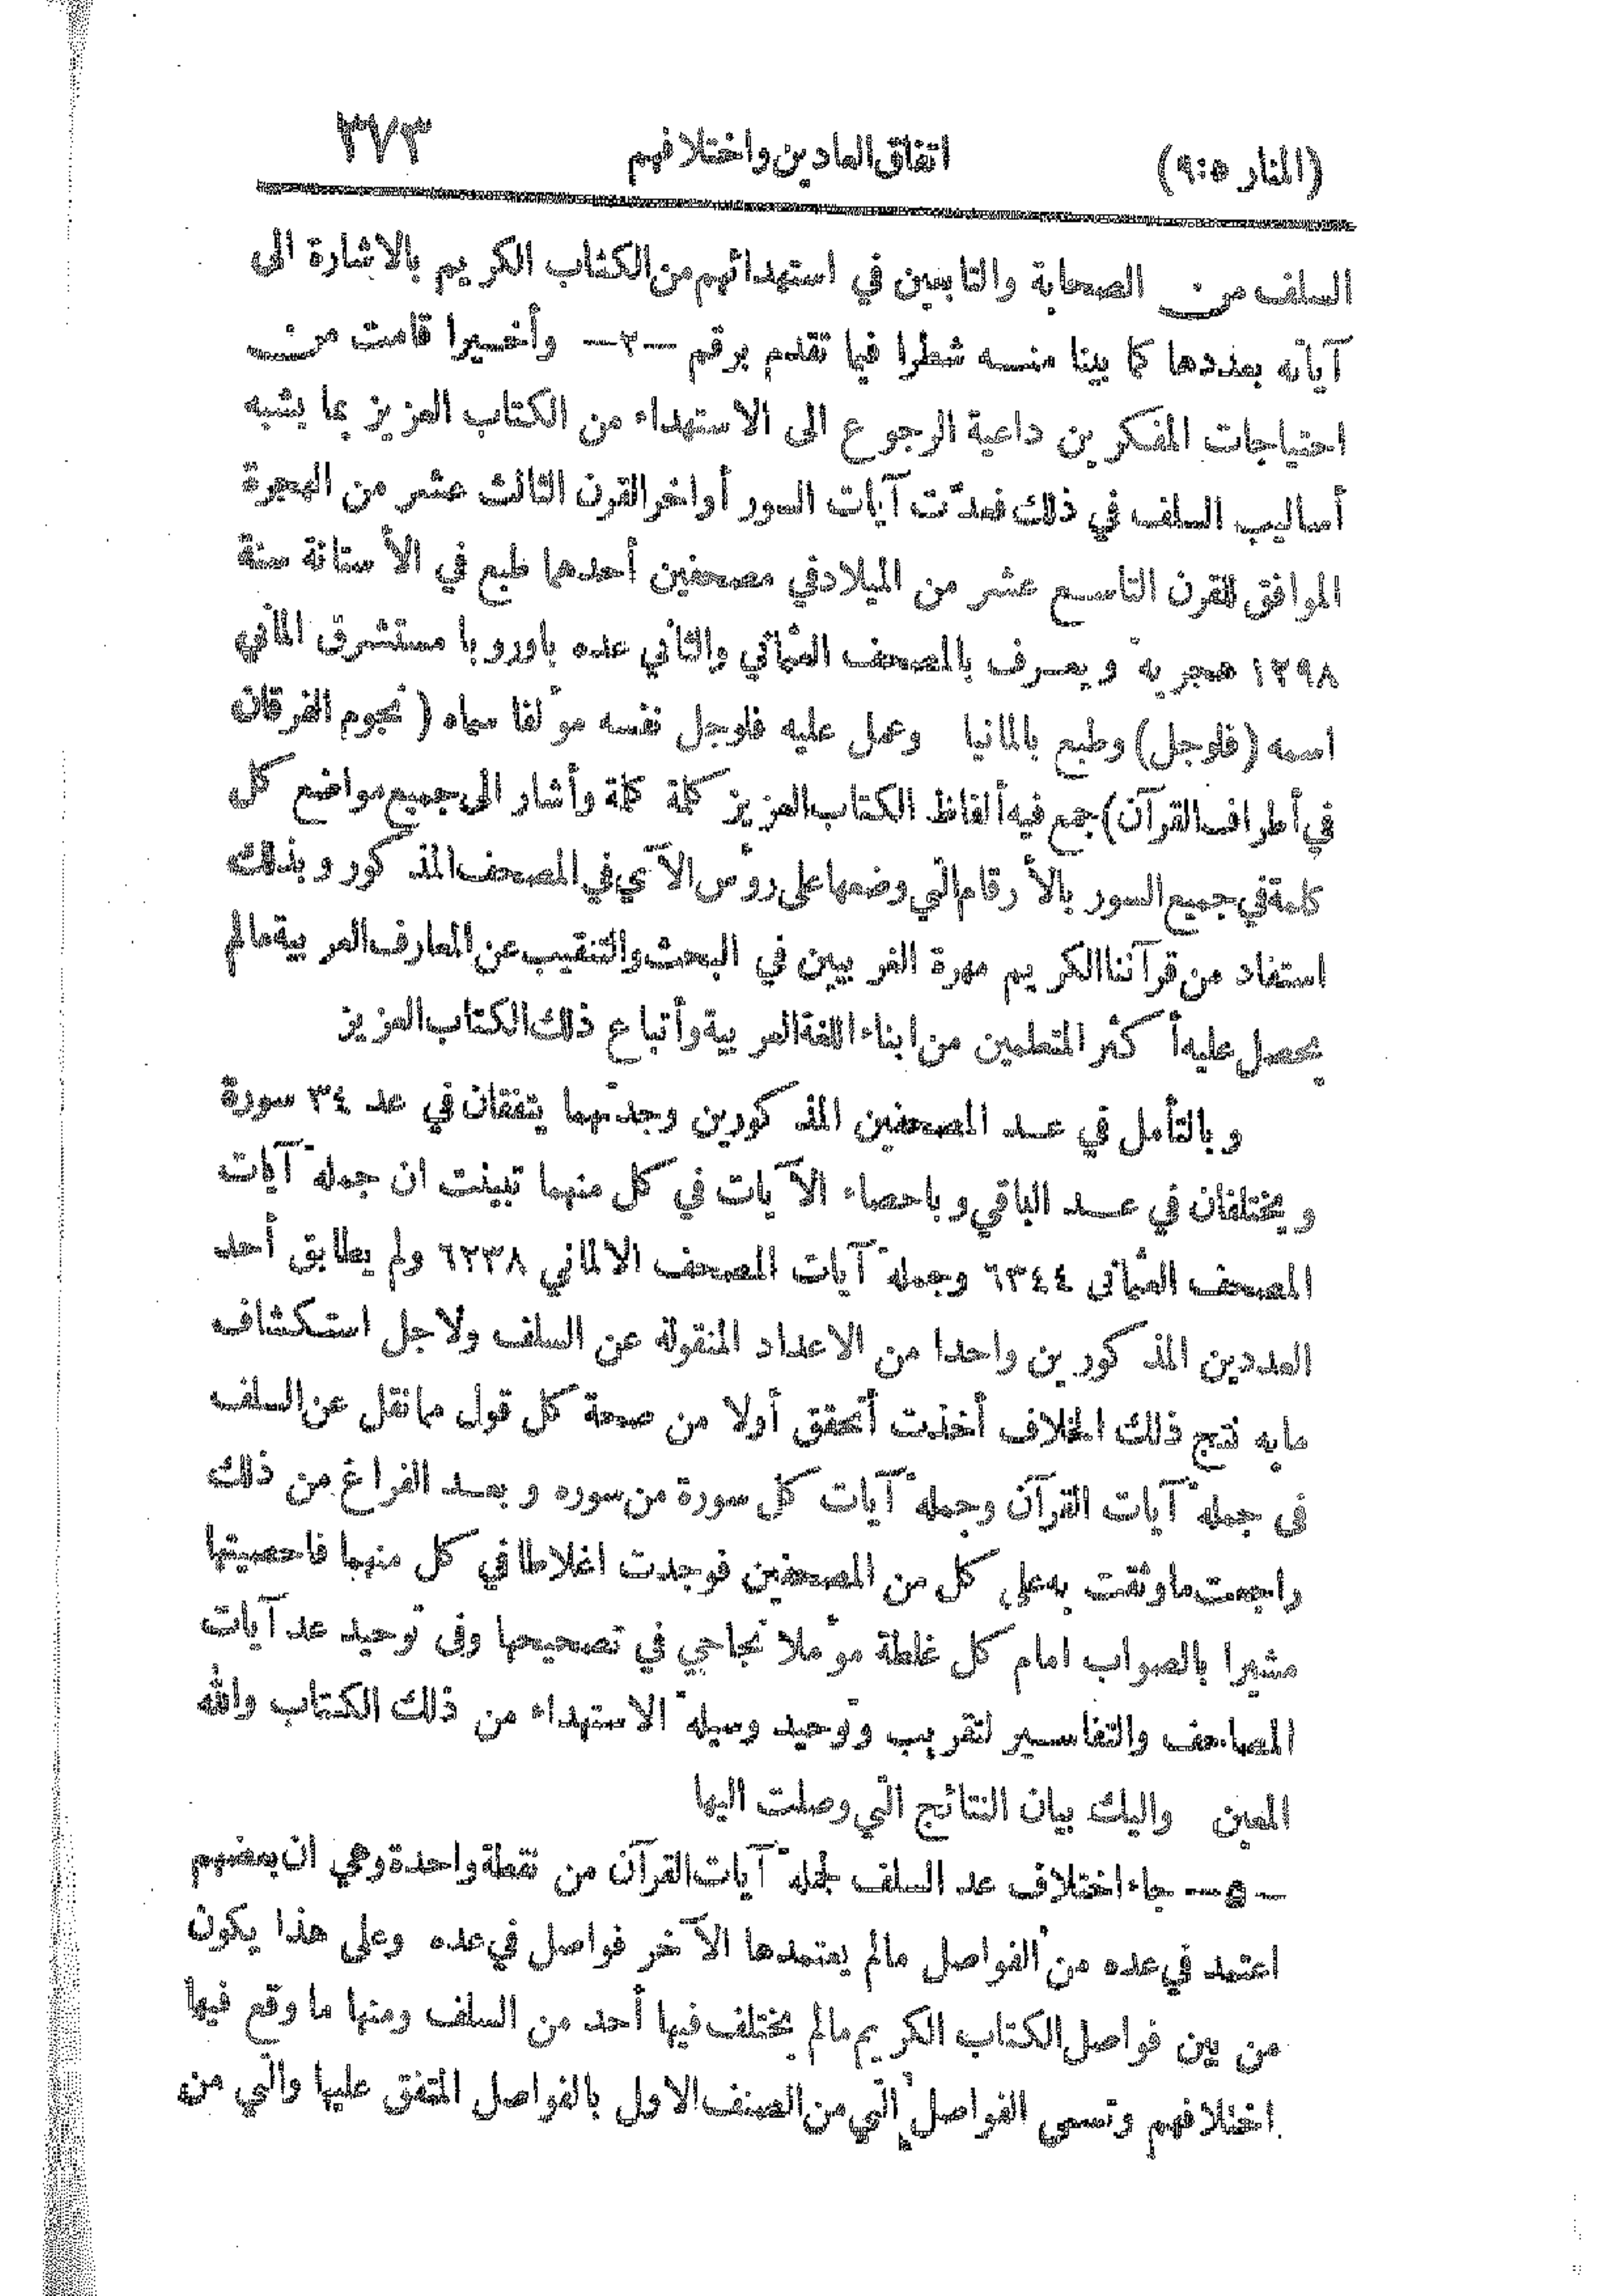 (المنار ٩:٥) اتفاق العادين واختلافهم ٣٧٣
السلف من الصحابة والتابعين في استهدائهم من الكتاب الكريم بالاشارة الى
آياته بعددها كما بينا منه شطرا فيما تقدم برقم —٢— وأخيرا قامت من
احتياجات المفكرين داعية الرجوع الى الاستهداء من الكتاب العزيز بما يشبه
أساليب السلف في ذلك فعدّت آيات السور أواخر القرن الثالث عشر من الهجرة
الموافق للقرن التاسع عشر من الميلاد في مصحفين أحدهما طبع في الأستانة سنة
١٢٩٨ هجرية ويعرف بالمصحف العثماني والثاني عده باوروبا مستشرق الماني
اسمه (فلوجل) وطبع بالمانيا وعمل عليه فلوجل نفسه مؤلفا سماه (نجوم الفرقان
في أطراف القرآن) جمع فيه ألفاظ الكتاب العزيز كلمة كلمة وأشار الى جميع مواضع كل
كلمة في جميع السور بالأرقام التي وضعها على رؤس الآي في المصحف المذكور وبذلك
استفاد من قرآننا الكريم مهرة الغربيين في البحث والتنقيب عن المعارف العربية مالم
يحصل عليه أكثر المتعلمين من ابناء اللغة العربية وأتباع ذلك الكتاب العزيز
وبالتأمل في عد المصحفين المذكورين وجدتهما يتفقان في عد ٣٤ سورة
ويختلفان في عد الباقي وباحصاء الآيات في كل منهما تبينت ان جملة آيات
المصحف العثماني ٦٣٤٤ وجملة آيات المصحف الالماني ٦٢٣٨ ولم يطابق أحد
العددين المذكورين واحدا من الاعداد المنقولة عن السلف ولاجل استكشاف
مابه نتج ذلك الخلاف أخذت أتحقق أولا من صحة كل قول مما نقل عن السلف
فى جملة آيات القرآن وجملة آيات كل سورة من سوره وبعد الفراغ من ذلك
راجعت ماوثقت به على كل من المصحفين فوجدت اغلاطا في كل منهما فاحصيتها
مشيرا بالصواب امام كل غلطة مؤملا نجاحي في تصحيحها وفى توحيد عد آيات
المصاحف والتفاسير لتقريب وتوحيد وسيلة الاستهداء من ذلك الكتاب والله
المعين واليك بيان النتائج التي وصلت اليها
—٥— جاء اختلاف عد السلف لجملة آيات القرآن من نقطة واحدة وهي ان بعضهم
اعتمد في عده من الفواصل مالم يعتمدها الآخر فواصل في عده وعلى هذا يكون
من بين فواصل الكتاب الكريم مالم يختلف فيها أحد من السلف ومنها ما وقع فيها
اختلافهم وتسمى الفواصل التي من الصنف الاول بالفواصل المتفق عليها والتي من